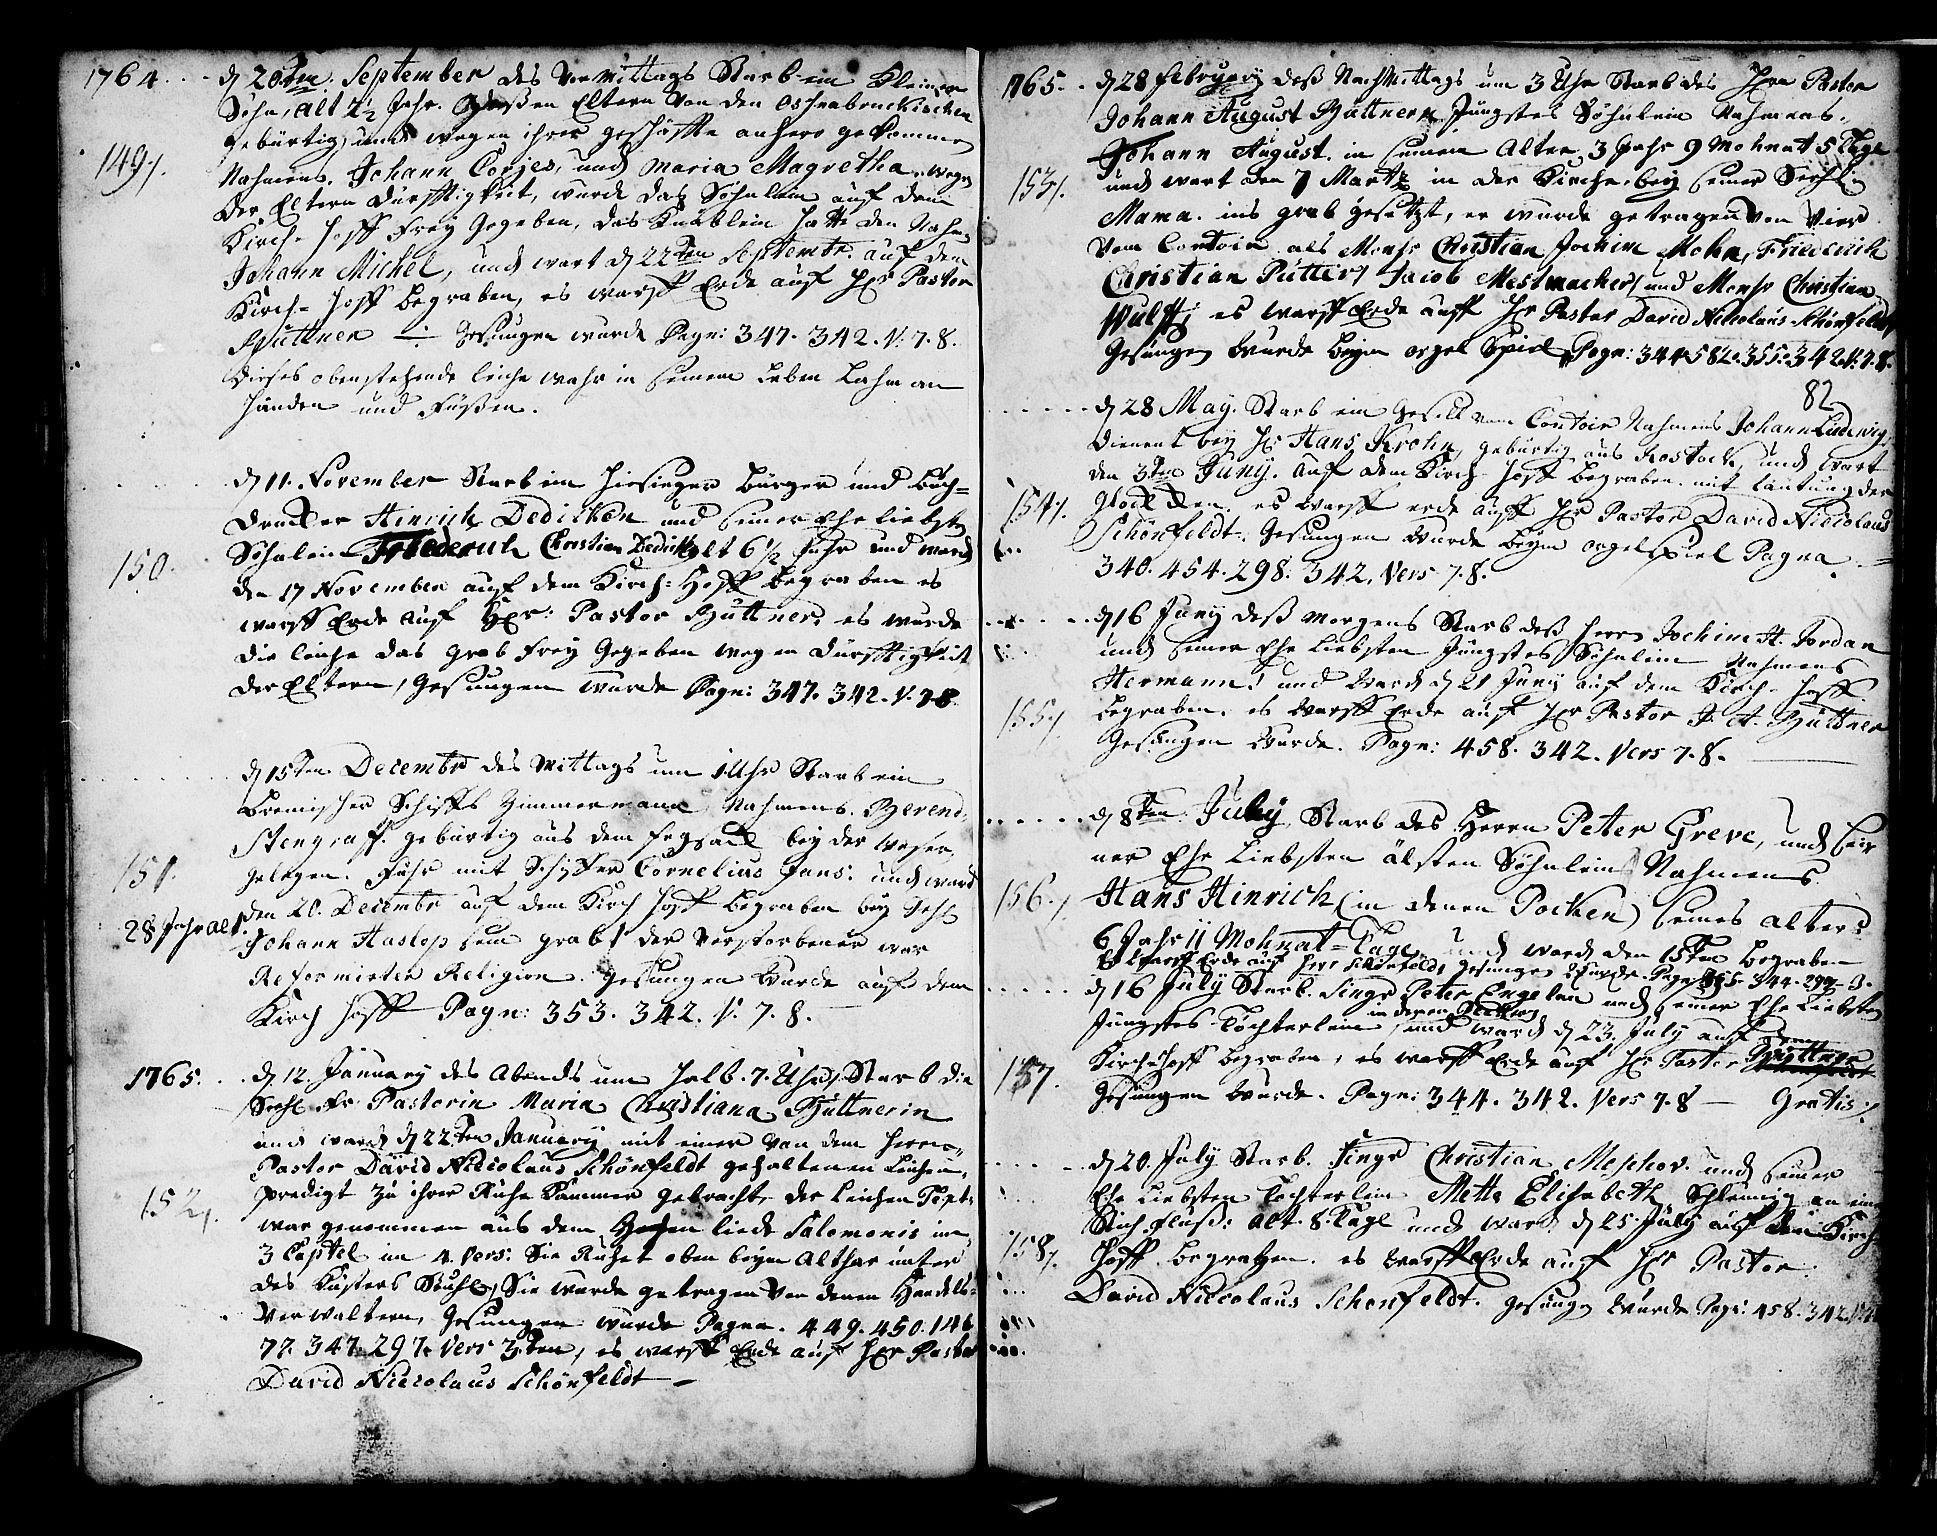 1764. d 20ten. September des Vormittags Starb ein Kleiner
Sohn, alt 2½ Jahr. dessen Eltern von den Osnabruckischen
gebürtig, und wegen ihrer geschäffte anhero gekommen
149. Nahmens. Johann Corjes, und Maria Magretha, wegen
der Eltern Durfftigkeit, wurde das Söhnlein auf dem
Kirch-Hoff frey gegeben, das Knäblein hatte den Nahmen
Johann Michel, und wart d 22ten Septembr. auf dem
Kirch-Hoff begraben, es warff Erde auf Hr Pastor
Büttner — Gesungen wurde Pagn: 347. 342. V: 7. 8.
Dieses obenstehende leiche wahr in seinem Leben Lahm an
Händen und Füßen.
d 11. November Starb ein hiesieger Bürger und Buch-
drucker Hinrich Dedicken und seiner Eheliebsten
Söhnlein Friederich Christian Dedick alt 6½ Jahr und ward
150. den 17 November auf dem Kirch-Hoff begraben es
warff Erde auf Hr: Pastor Büttner, es wurde
die leiche das grab frey gegeben wegen dürfftigkeit
der Eltern, Gesungen wurde Pagn: 347. 342. V. 7. 8.
d 15ten Decembr des Mittags um 1 Uhr Starb ein
Bremischer Schiffs Zimmermann Nahmens. Berend
Stengraff. gebürtig aus dem Fegsack bey der Weser
151. gelegen. Fuhr mit Schiffer Cornelius Jans: und ward
den 20. Decembr auf dem Kirch Hoff begraben bey Sehl
28 Jahr alt. Johann Haslop sein grab, der Verstorbener war
Reformirter Religion. Gesungen Wurde auf dem
Kirch Hoff Pagn: 353. 342. V. 7. 8.
1765. d 12. January des Abends um halb 7. Uhr, Starb die
Seehl Fr Pastorin Maria Christiana Büttnerin
und ward d 22ten January mit einer von dem Herrn
Pastor David Niccolaus Schönfeldt gehaltenen Leichen-
152. predigt zu ihrer Ruhe Kammer gebracht, der Leichen Text
war genommen aus dem Hohen liede Salomonis im
3 Capitel im 4. Vers: Sie Ruhet oben beym Althar unter
des Küsters Stuhl, Sie wurde getragen von denen Handels-
Verwaltern, Gesungen wurde Pagna. 449. 450. 146
77. 347. 297. Vers 3ten, es warff Erde auf Hr Pastor
David Niccolaus Schönfeldt —
1765. d 28 February deß Nachmittags um 3 Uhr Starb des Hrn Pastor
Johann August Büttner Jüngstes Söhnlein Nahmens.
Johann August. in seinem Alter 3 Jahr 9 Mohnat 5 Tage
153. und wart den 7 Martz in der Kirche bey seiner Seehl
Mama. ins grab gesetzt, er wurde getragen von Vier
vom Contoir als Monsr Christian Jochim Mohn, Friederich
Christian Pütter, Jacob Mestmacher, und Monsr Christian
Wulff, es warff Erde auff Hr Pastor David Nicolaus Schönfeldt,
Gesungen Wurde beym orgel Spiel, Pagn: 344. 582. 355. 342. V. 7. 8.
82
d 28 May. Starb ein Gesell vom Contoir Nahmens Johann Ludewig,
dienent bey Hr Hans Krohn, gebürtig aus Rostock, und wart
den 3ten Juny. auf dem Kirch-Hoff begraben. mit läutung der
154. Glocken. es warff erde auff Hr Pastor David Niccolaus
Schönfeldt. Gesungen Wurde beym orgelspiel Pagna
340. 454. 298. 342, Vers 7. 8.
d 16 Juny deß Morgens Starb deß Herrn Jochim H. Jordan
und seiner Ehe Liebsten Jüngstes Söhnlein Nahmens
Hermann. und Ward d 21 Juny auf dem Kirch-Hoff
155. begraben. es Warff Erde auf Hr Pastor J. A. Büttner
Gesungen Wurde. Pagn: 458. 342. Vers 7. 8.
d 8ten July Starb des Herrn Peter Greve, und Sei-
ner Ehe Liebsten älsten Söhnlein Nahmens
156. Hans Hinrich (in denen Pocken) seines alters
6 Jahr 11 Mohnat = Tage und ward den 15ten begraben
Es warff Erde auf Herr Schönfeldt, gesungen Wurde. Pagn 355. 344. 297. 3.
d 16 July Starb. Singr Peter Engelen und seiner Ehe Liebsten
in denen Pocken
Jüngstes Töchterlein und ward d 23. July auf dem
157. Kirch-Hoff begraben, es warff Erde auf Hr Pastor Büttner
Gesungen Wurde. Pagn: 344. 342. Vers 7. 8 — Gratis.
d 20. July Starb. Singr Christian Meschov. und seiner
Ehe Liebsten Töchterlein Metta Elisabeth Schleunig an einen
Stich Fluß: alt. 8. Tage und ward d 25. July auf dem Kirch
158. Hoff begraben. es warff Erde auf Hr Pastor
David Niccolaus Schönfeldt. gesungen Wurde Pagn: 458. 342.